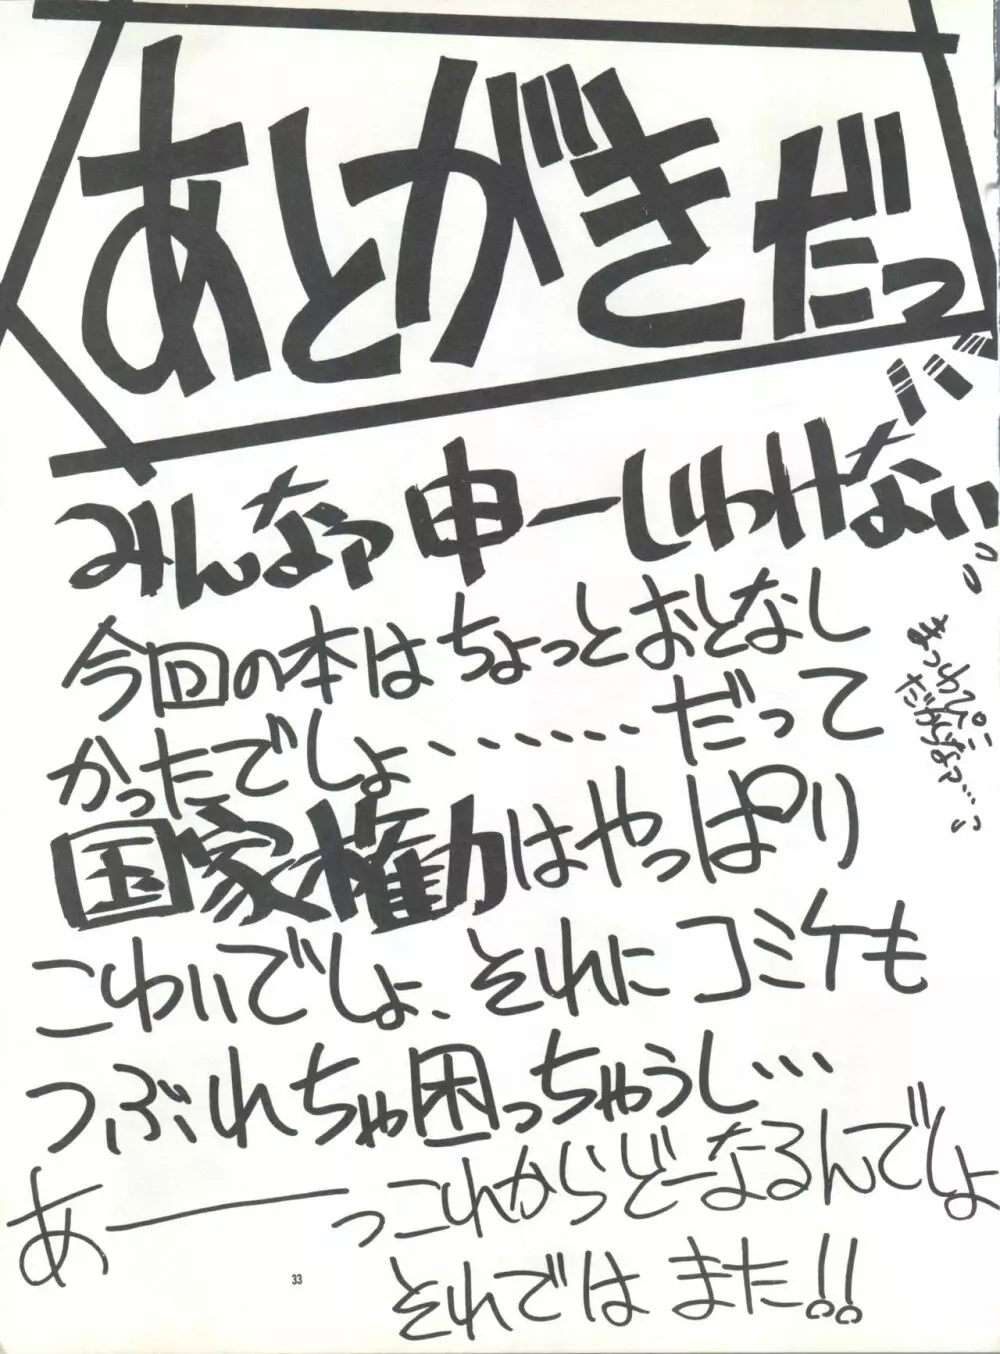 あとがきだっ
みんなァ申ーしわけないッ
今回の本はちょっとおとなし
かったでしょ………だって
国家権力はやっぱり
こわいでしょ、それにコミケも
つぶれちゃ困っちゃうし…
あ―――っこれからどーなるんでしょ
それではまた!!
33